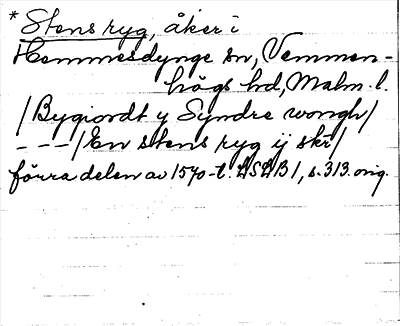 * Stens ryg, åker i
Hemmesdynge sn, Vemmen-
högs hd, Malm. l.
/Bygiordt y Syndre wongh/
- - - /En stens ryg ij skr/
förra delen av 1570-t. LSDB1, s. 313. orig.